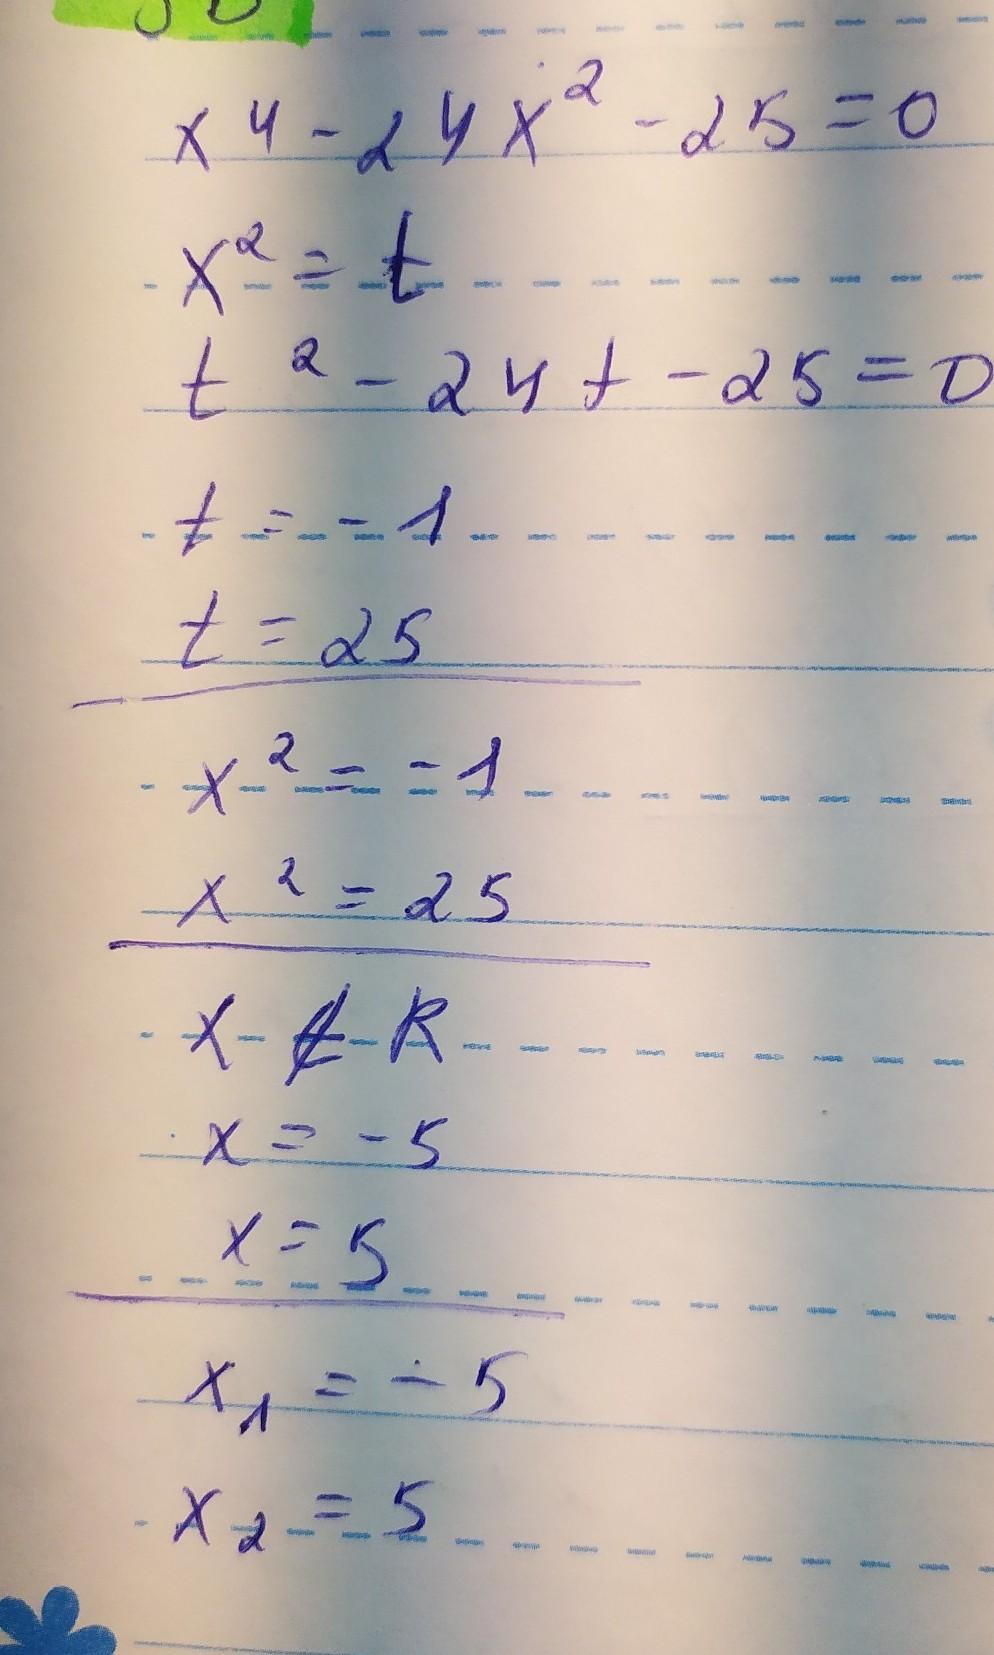 x⁴-24x²-25=0
x²=t
t²-24t-25=0
t=-1
t=25
x²=-1
x²=25
x∉R
x=-5
x=5
x₁=-5
x₂=5